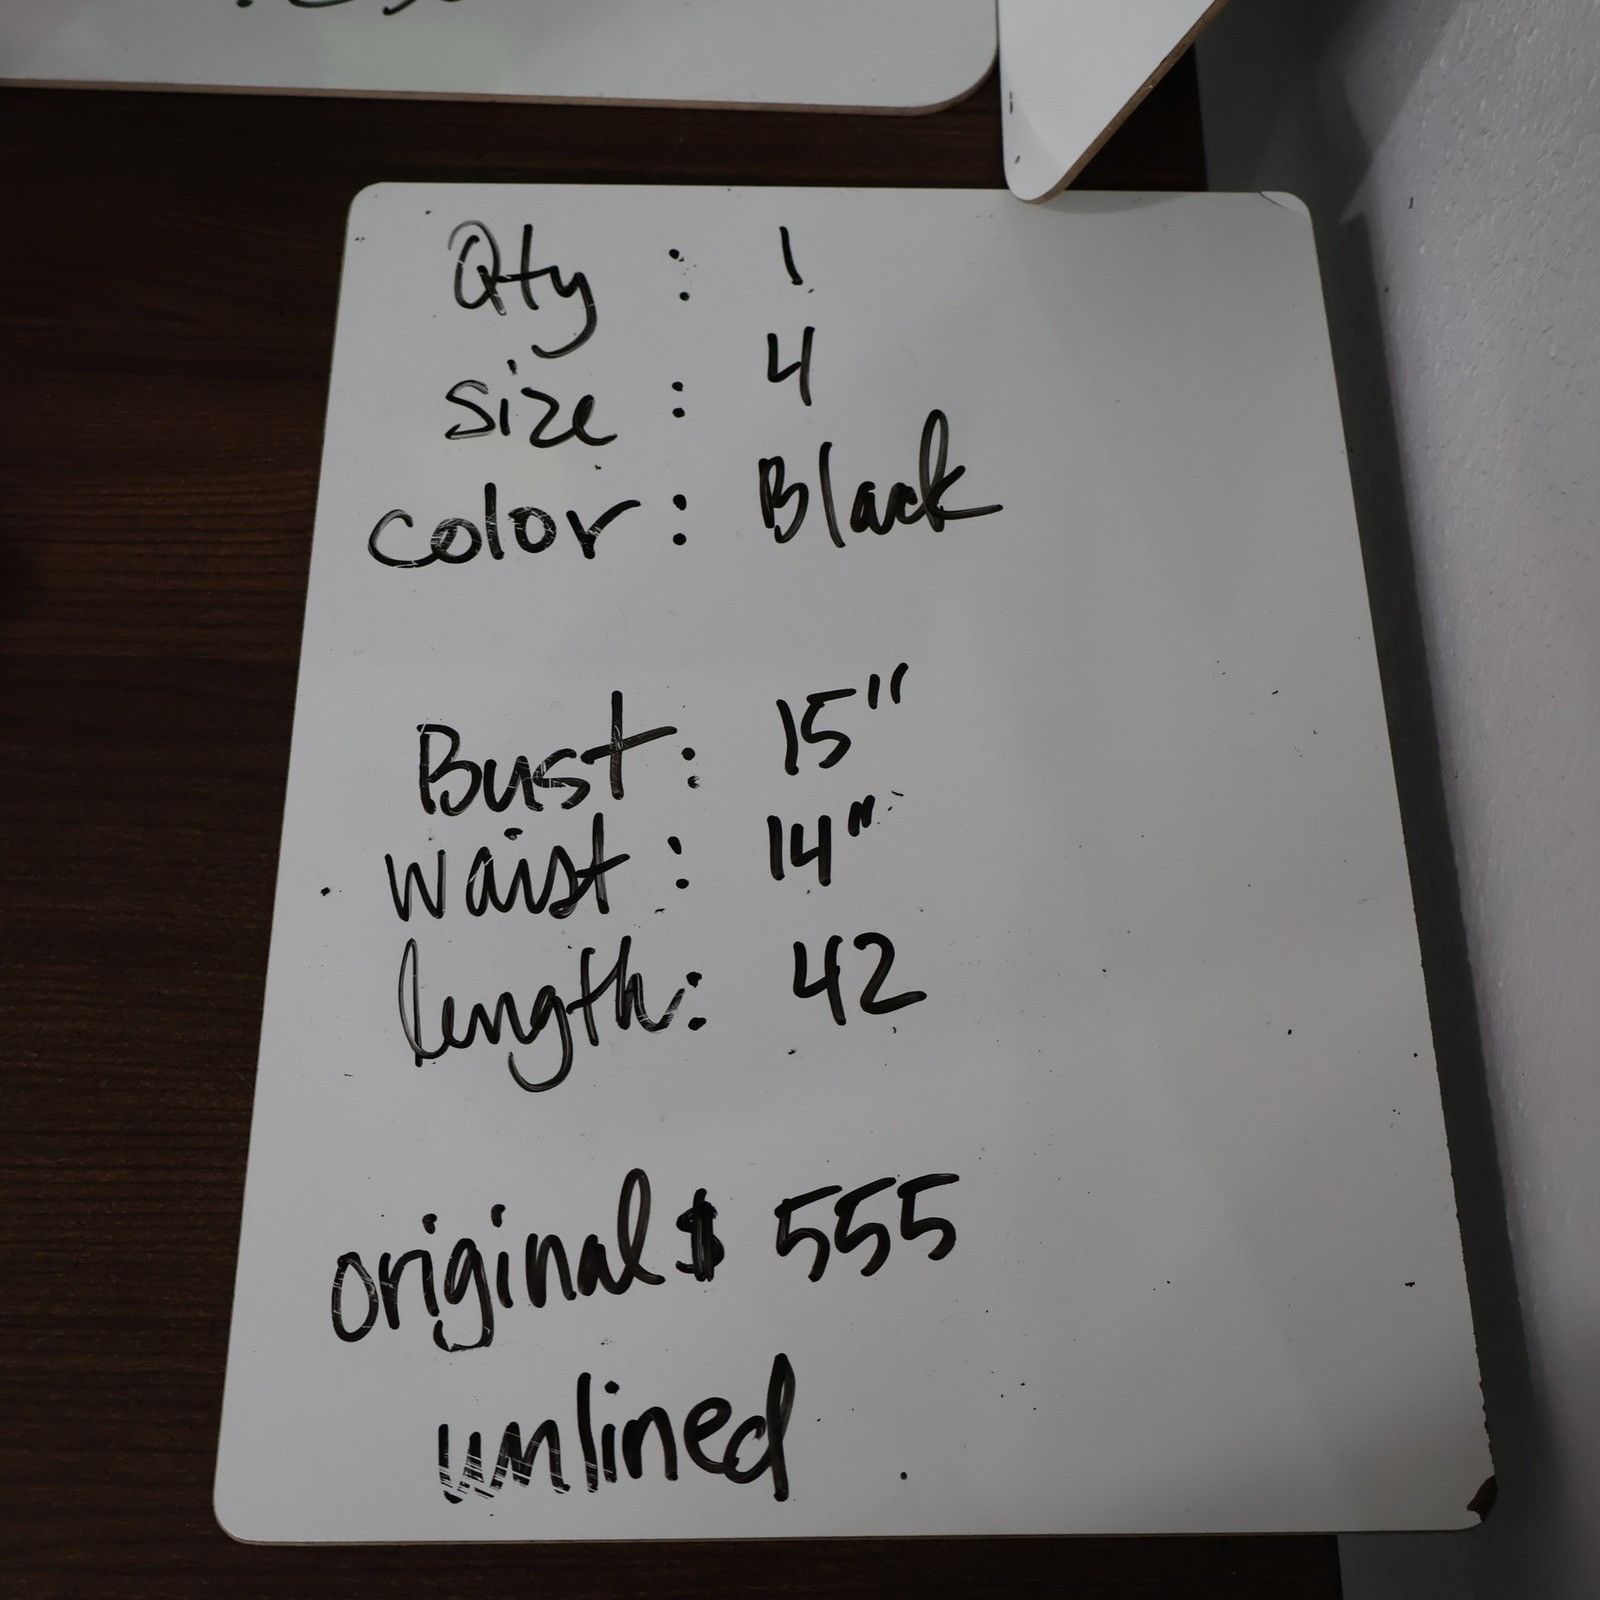 Qty : 1
size : 4
color : Black
Bust : 15"
waist : 14"
length : 42
original $ 555
unlined